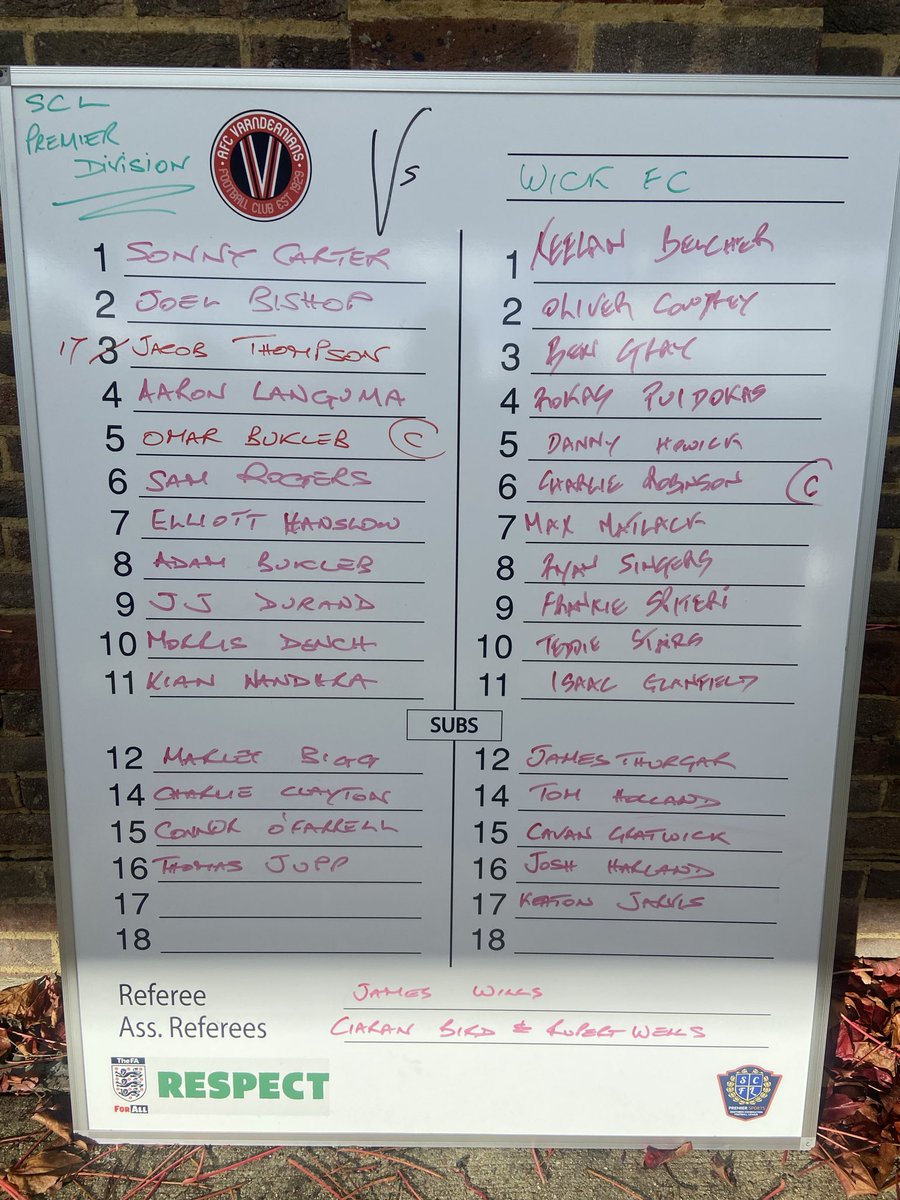 SCL
PREMIER
DIVISION
AFC VARNDEANIANS
FOOTBALL CLUB EST 1929
Vs
WICK FC
1 SONNY CARTER
2 JOEL BISHOP
17 3 JACOB THOMPSON
4 AARON LANGUMA
5 OMAR BUKLEB C
6 SAM ROGERS
7 ELLIOTT HANSLOW
8 ADAM BUKLEB
9 JJ DURAND
10 MORRIS DENCH
11 KIAN
1 KEELAN BELCHER
2 OLIVER
3 BEN GRAY
4 ROKAS PUIDOKAS
5 DANNY HOWICK
6 CHARLIE ROBINSON C
7 MAX MATLACK
8 RYAN SINGERS
9 FRANKIE SPITERI
10 TEDDIE
11 ISAAC GLANFIELD
SUBS
12 MARLEY BIGG
14 CHARLIE CLAYTON
15 CONNOR O'FARRELL
16 THOMAS JUPP
17
18
12 JAMES THURGAR
14 TOM HOLLAND
15 CAVAN GRATWICK
16 JOSH HARLAND
17 KEATON JARVIS
18
Referee JAMES WILLS
Ass. Referees CIARAN BIRD & RUPERT WELLS
TheFA
FORALL
RESPECT
SCFL
PREMIER SPORTS